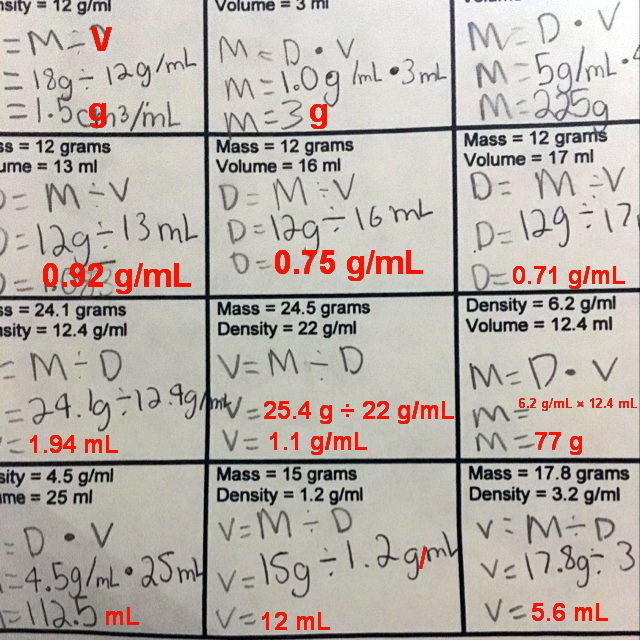 nsity = 12 g/ml
= M ÷ V
= 18g ÷ 12g/mL
= 1.5
Volume = 3 ml
M = D • V
M = 1.0g/mL • 3mL
M = 3 g
M = D • V
M = 5g/mL •
M = 225g
ss = 12 grams
ume = 13 ml
D = M ÷ V
D = 12g ÷ 13mL
D = 0.92 g/mL
Mass = 12 grams
Volume = 16 ml
D = M ÷ V
D = 12g ÷ 16mL
D = 0.75 g/mL
Mass = 12 grams
Volume = 17 ml
D = M ÷ V
D = 12g ÷ 17
D = 0.71 g/mL
ss = 24.1 grams
nsity = 12.4 g/ml
= M ÷ D
= 24.1g ÷ 12.4g/mL
= 1.94 mL
Mass = 24.5 grams
Density = 22 g/ml
V = M ÷ D
V = 25.4 g ÷ 22 g/mL
V = 1.1 g/mL
Density = 6.2 g/ml
Volume = 12.4 ml
M = D • V
M = 6.2 g/mL × 12.4 mL
M = 77 g
sity = 4.5 g/ml
me = 25 ml
= D • V
= 4.5g/mL • 25mL
= 112.5 mL
Mass = 15 grams
Density = 1.2 g/ml
V = M ÷ D
V = 15g ÷ 1.2g/mL
V = 12 mL
Mass = 17.8 grams
Density = 3.2 g/ml
V = M ÷ D
V = 17.8g ÷ 3
V = 5.6 mL